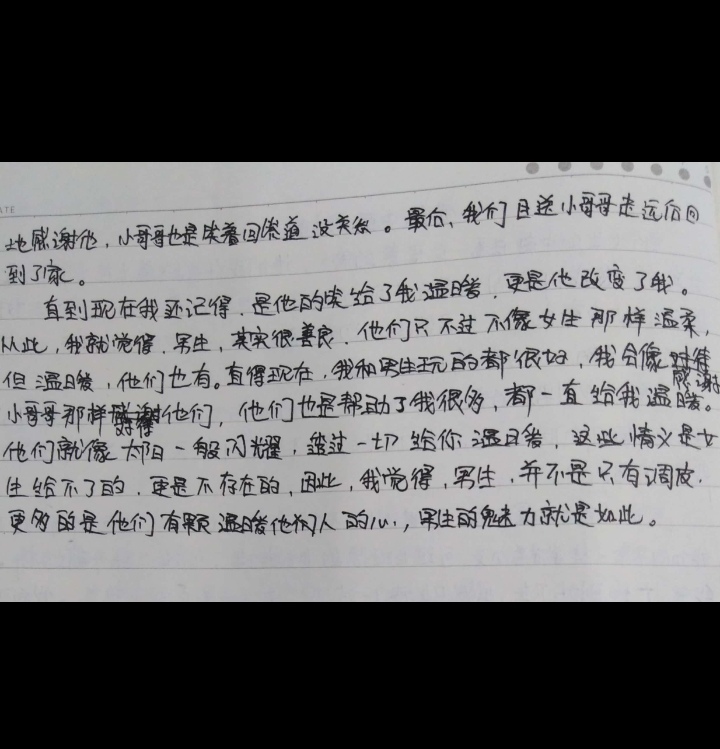 ATE
地感谢他，小哥哥也是笑着回答道没关系。最后，我们目送小哥哥走远后回
到了家。
直到现在我还记得，是他的笑给了我温暖，更是他改变了我。
从此，我就觉得，男生，其实很善良，他们只不过不像女生那样温柔，
但温暖，他们也有。直得现在，我和男生玩的都很好，我会像对待
小哥哥那样对待他们，他们也是帮助了我很多，都一直给我温暖。
感谢
他们就像太阳一般闪耀，透过一切给你温暖，这些情义是女
生给不了的，更是不存在的，因此，我觉得，男生，并不是只有调皮，
更多的是他们有颗温暖他们人的心，男生的魅力就是如此。